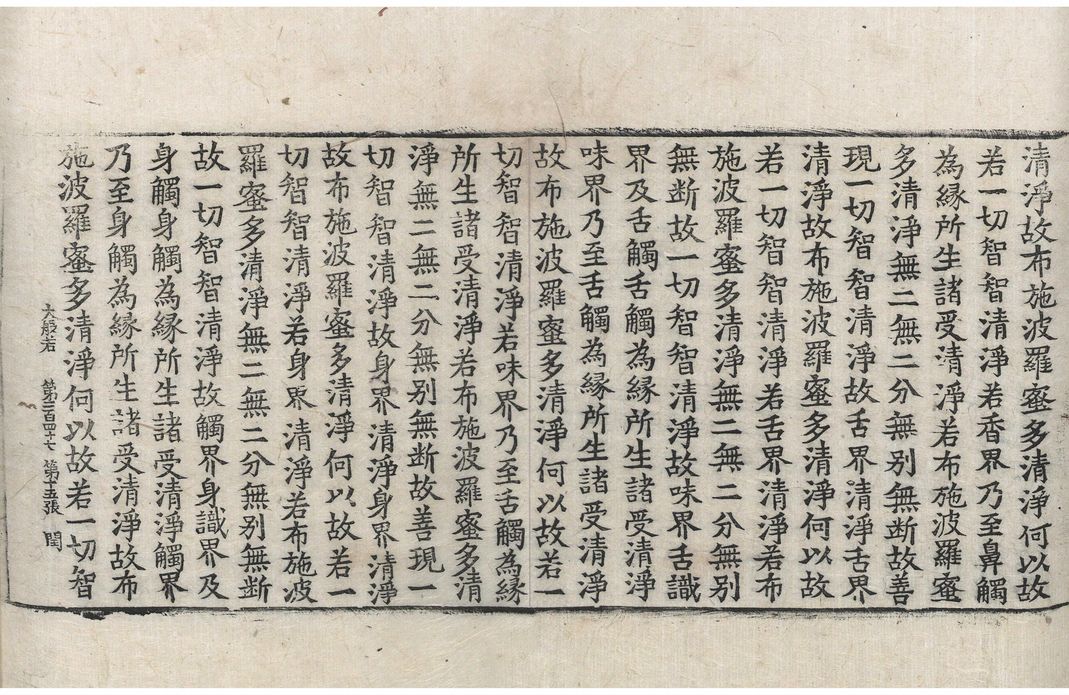 清淨故布施波羅蜜多清淨何以故
若一切智智清淨若香界乃至鼻觸
為緣所生諸受清淨若布施波羅蜜
多清淨無二無二分無別無斷故善
現一切智智清淨故舌界清淨舌界
清淨故布施波羅蜜多清淨何以故
若一切智智清淨若舌界清淨若布
施波羅蜜多清淨無二無二分無別
無断故一切智智清淨故味界舌識
界及舌觸舌觸為緣所生諸受清淨
味界乃至舌觸為緣所生諸受清淨
故布施波羅蜜多清淨何以故若一
切智智清淨若味界乃至舌觸為緣
所生諸受清淨若布施波羅蜜多清
淨無二無二分無别無断故善現一
切智智清淨故身界清淨身界清淨
故布施波羅蜜多清淨何以故若一
切智智清淨若身界清淨若布施波
羅蜜多清淨無二無二分無别無断
故一切智智清淨故觸界身識界及
身觸身觸為緣所生諸受清淨觸界
乃至身觸為緣所生諸受清淨故布
施波羅蜜多清淨何以故若一切智
大般若 第二百四十七 第十五張 閏